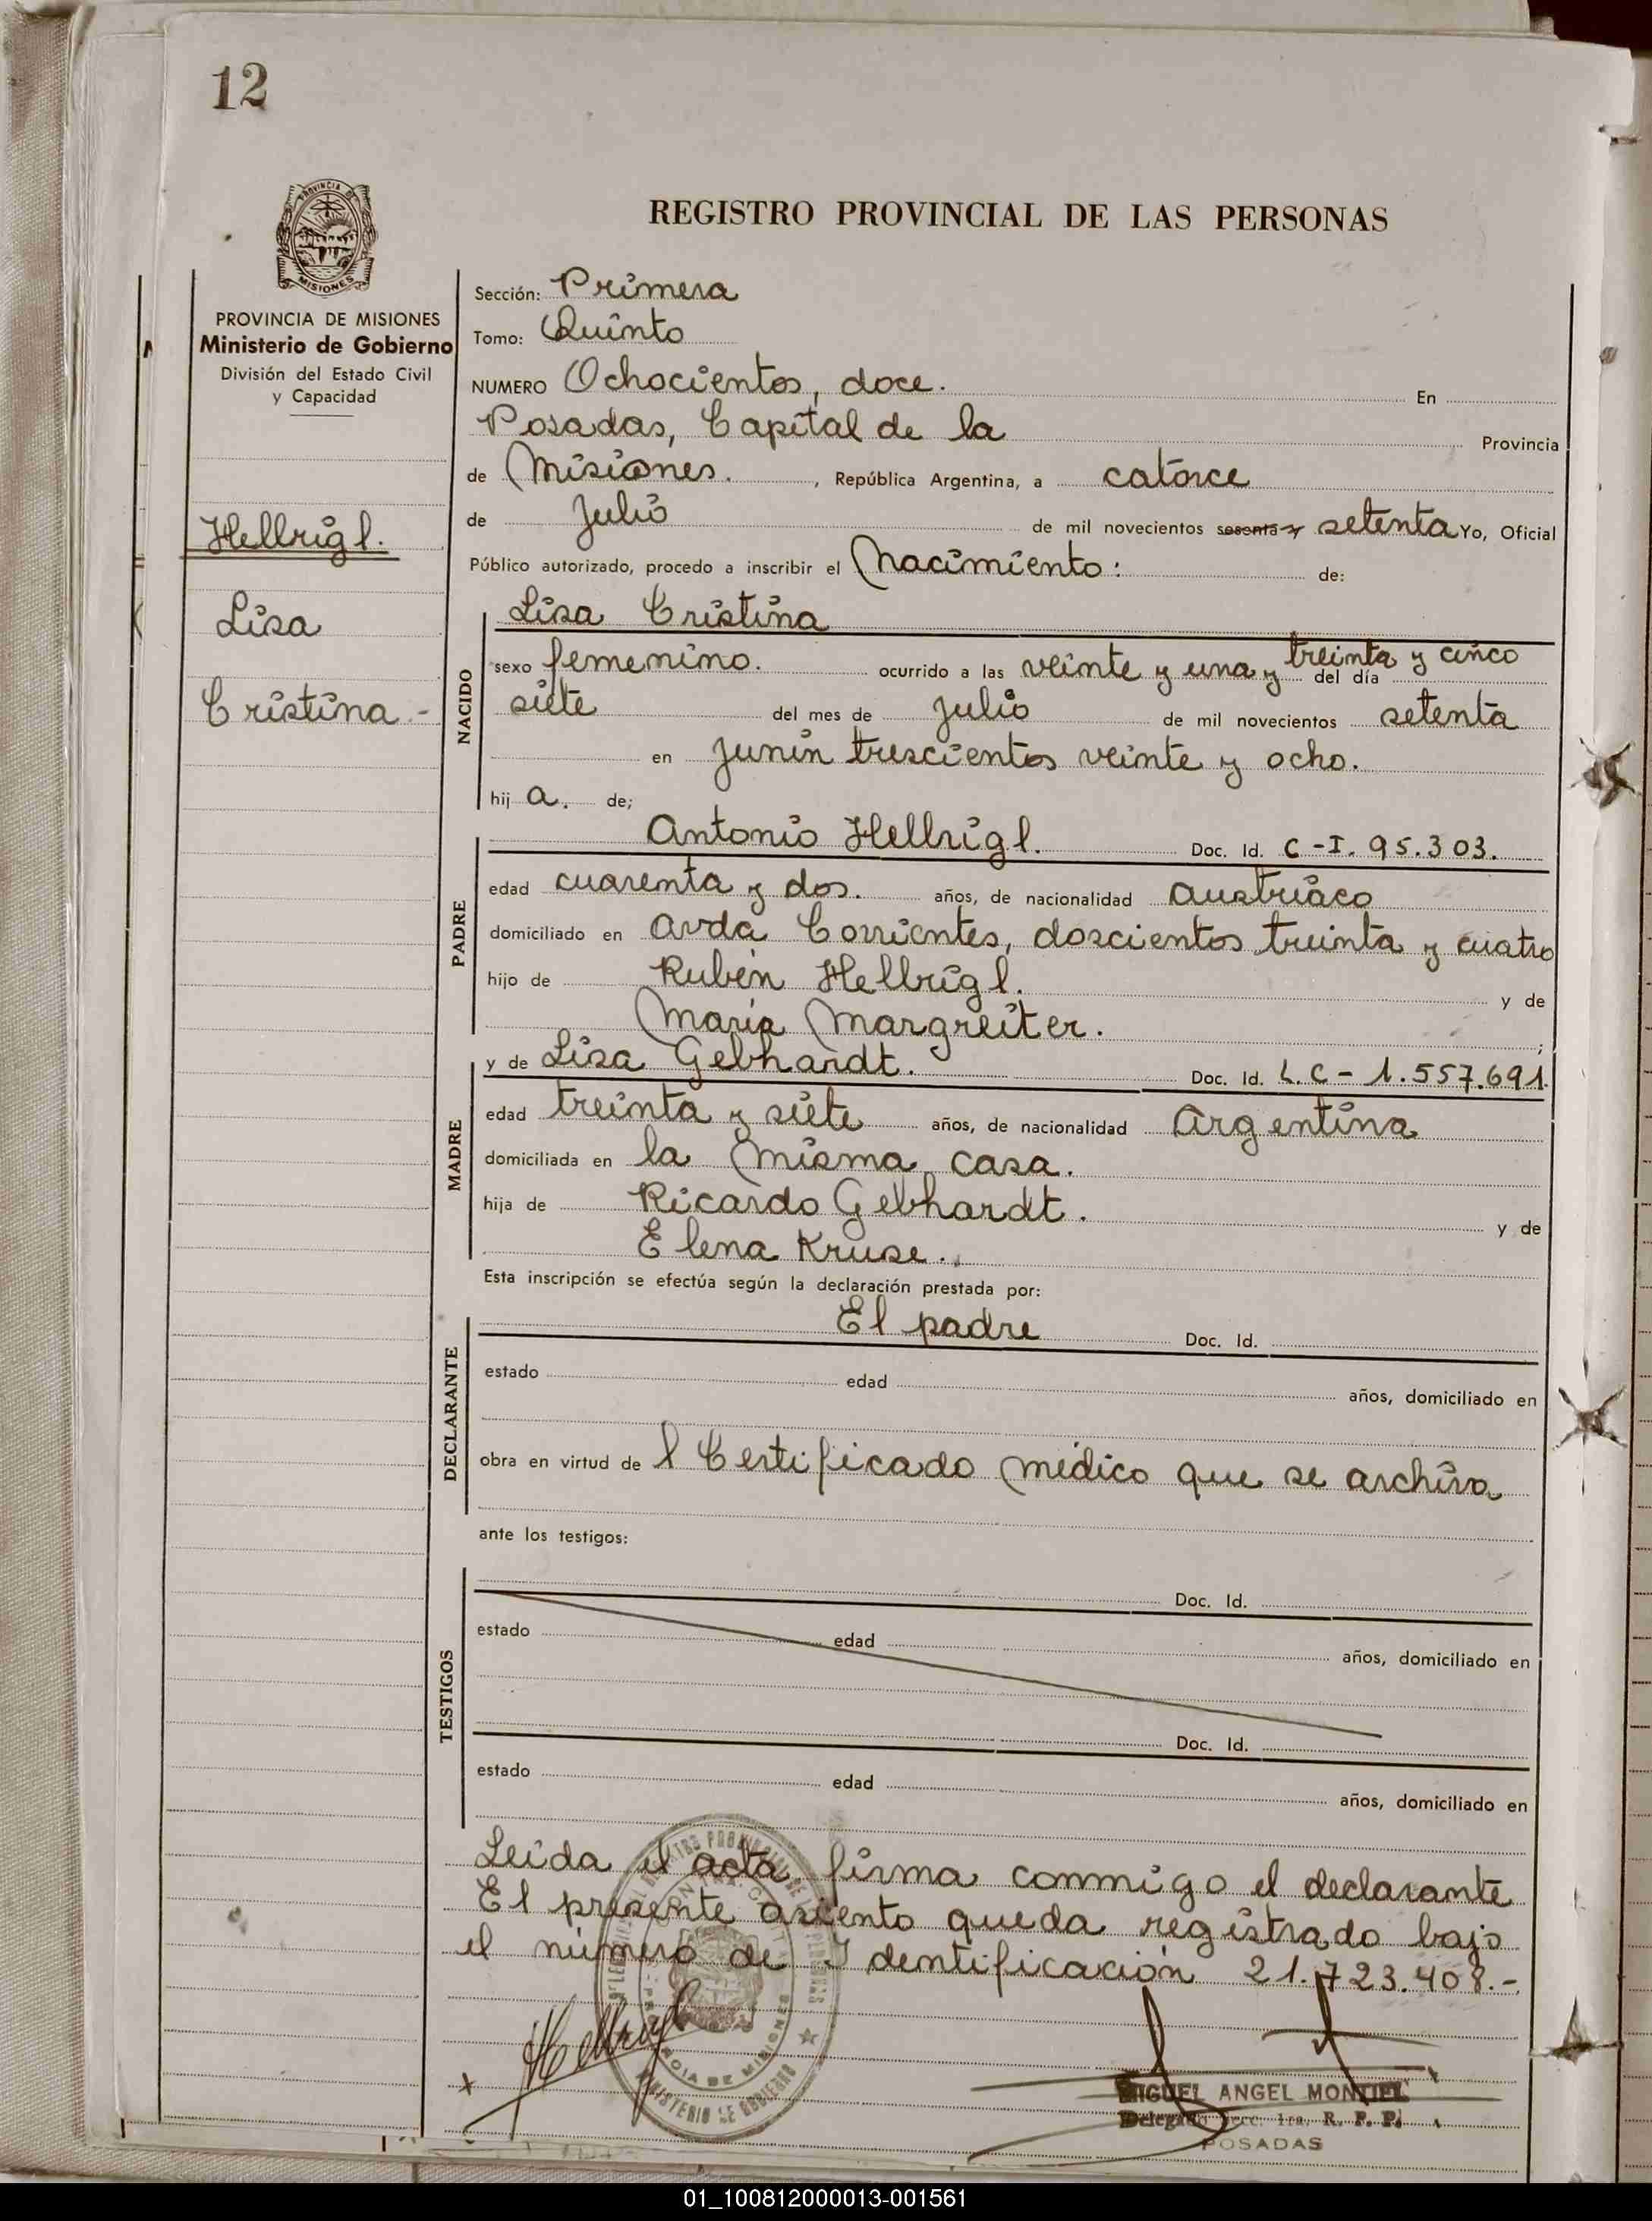 12
PROVINCIA DE
MISIONES
REGISTRO PROVINCIAL DE LAS PERSONAS
PROVINCIA DE MISIONES
Ministerio de Gobierno
División del Estado Civil
y Capacidad
Hellrigl.
Lisa
Cristina.-
Sección: Primera
Tomo: Quinto
NUMERO Ochocientos, doce. En
Posadas, Capital de la Provincia
de Misiones. , República Argentina, a catorce
de Julio de mil novecientos sesenta y setenta Yo, Oficial
Público autorizado, procedo a inscribir el Nacimiento: de:
NACIDO
Lisa Cristina
sexo femenino. ocurrido a las veinte y una y treinta y cinco del día
siete del mes de Julio de mil novecientos setenta
en Junín trescientos veinte y ocho.
hij a. de;
PADRE
Antonio Hellrigl. Doc. Id. C-I. 95.303.
edad cuarenta y dos. años, de nacionalidad Austriaco
domiciliado en Avda Corrientes, doscientos treinta y cuatro
hijo de Rubén Hellrigl. y de
María Margreiter. ;
MADRE
y de Lisa Gebhardt. Doc. Id. L.C- 1.557.691.
edad treinta y siete años, de nacionalidad Argentina
domiciliada en la misma casa.
hija de Ricardo Gebhardt. y de
Elena Kruse.
Esta inscripción se efectúa según la declaración prestada por:
DECLARANTE
El padre Doc. Id.
estado edad años, domiciliado en
obra en virtud de l Certificado médico que se archiva
ante los testigos:
TESTIGOS
Doc. Id.
estado edad años, domiciliado en
Doc. Id.
estado edad años, domiciliado en
Leida el acta, firma conmigo el declarante
El presente asiento queda registrado bajo
el número de Identificación 21.723.408.-
Hellrigl
MIGUEL ANGEL MONTIEL
Delegado Secc. 1ra. R. P. P.
POSADAS
01_100812000013-001561